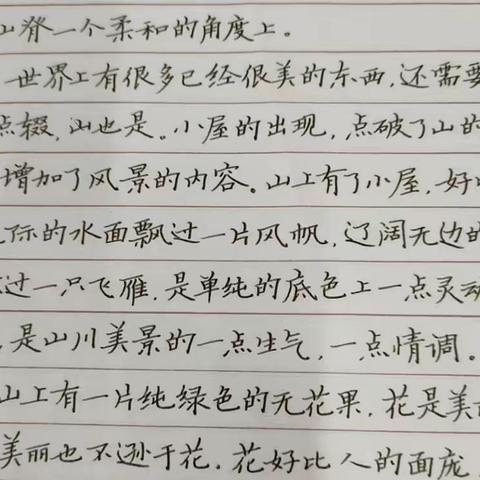 山脊一个柔和的角度上。
世界上有很多已经很美的东西,还需要
点缀,山也是。小屋的出现,点破了山的
增加了风景的内容。山上有了小屋,好
际的水面飘过一片风帆,辽阔无边的
过一只飞雁,是单纯的底色上一点灵动
,是山川美景的一点生气,一点情调。
山上有一片纯绿色的无花果,花是美
美丽也不逊于花。花好比人的面庞,